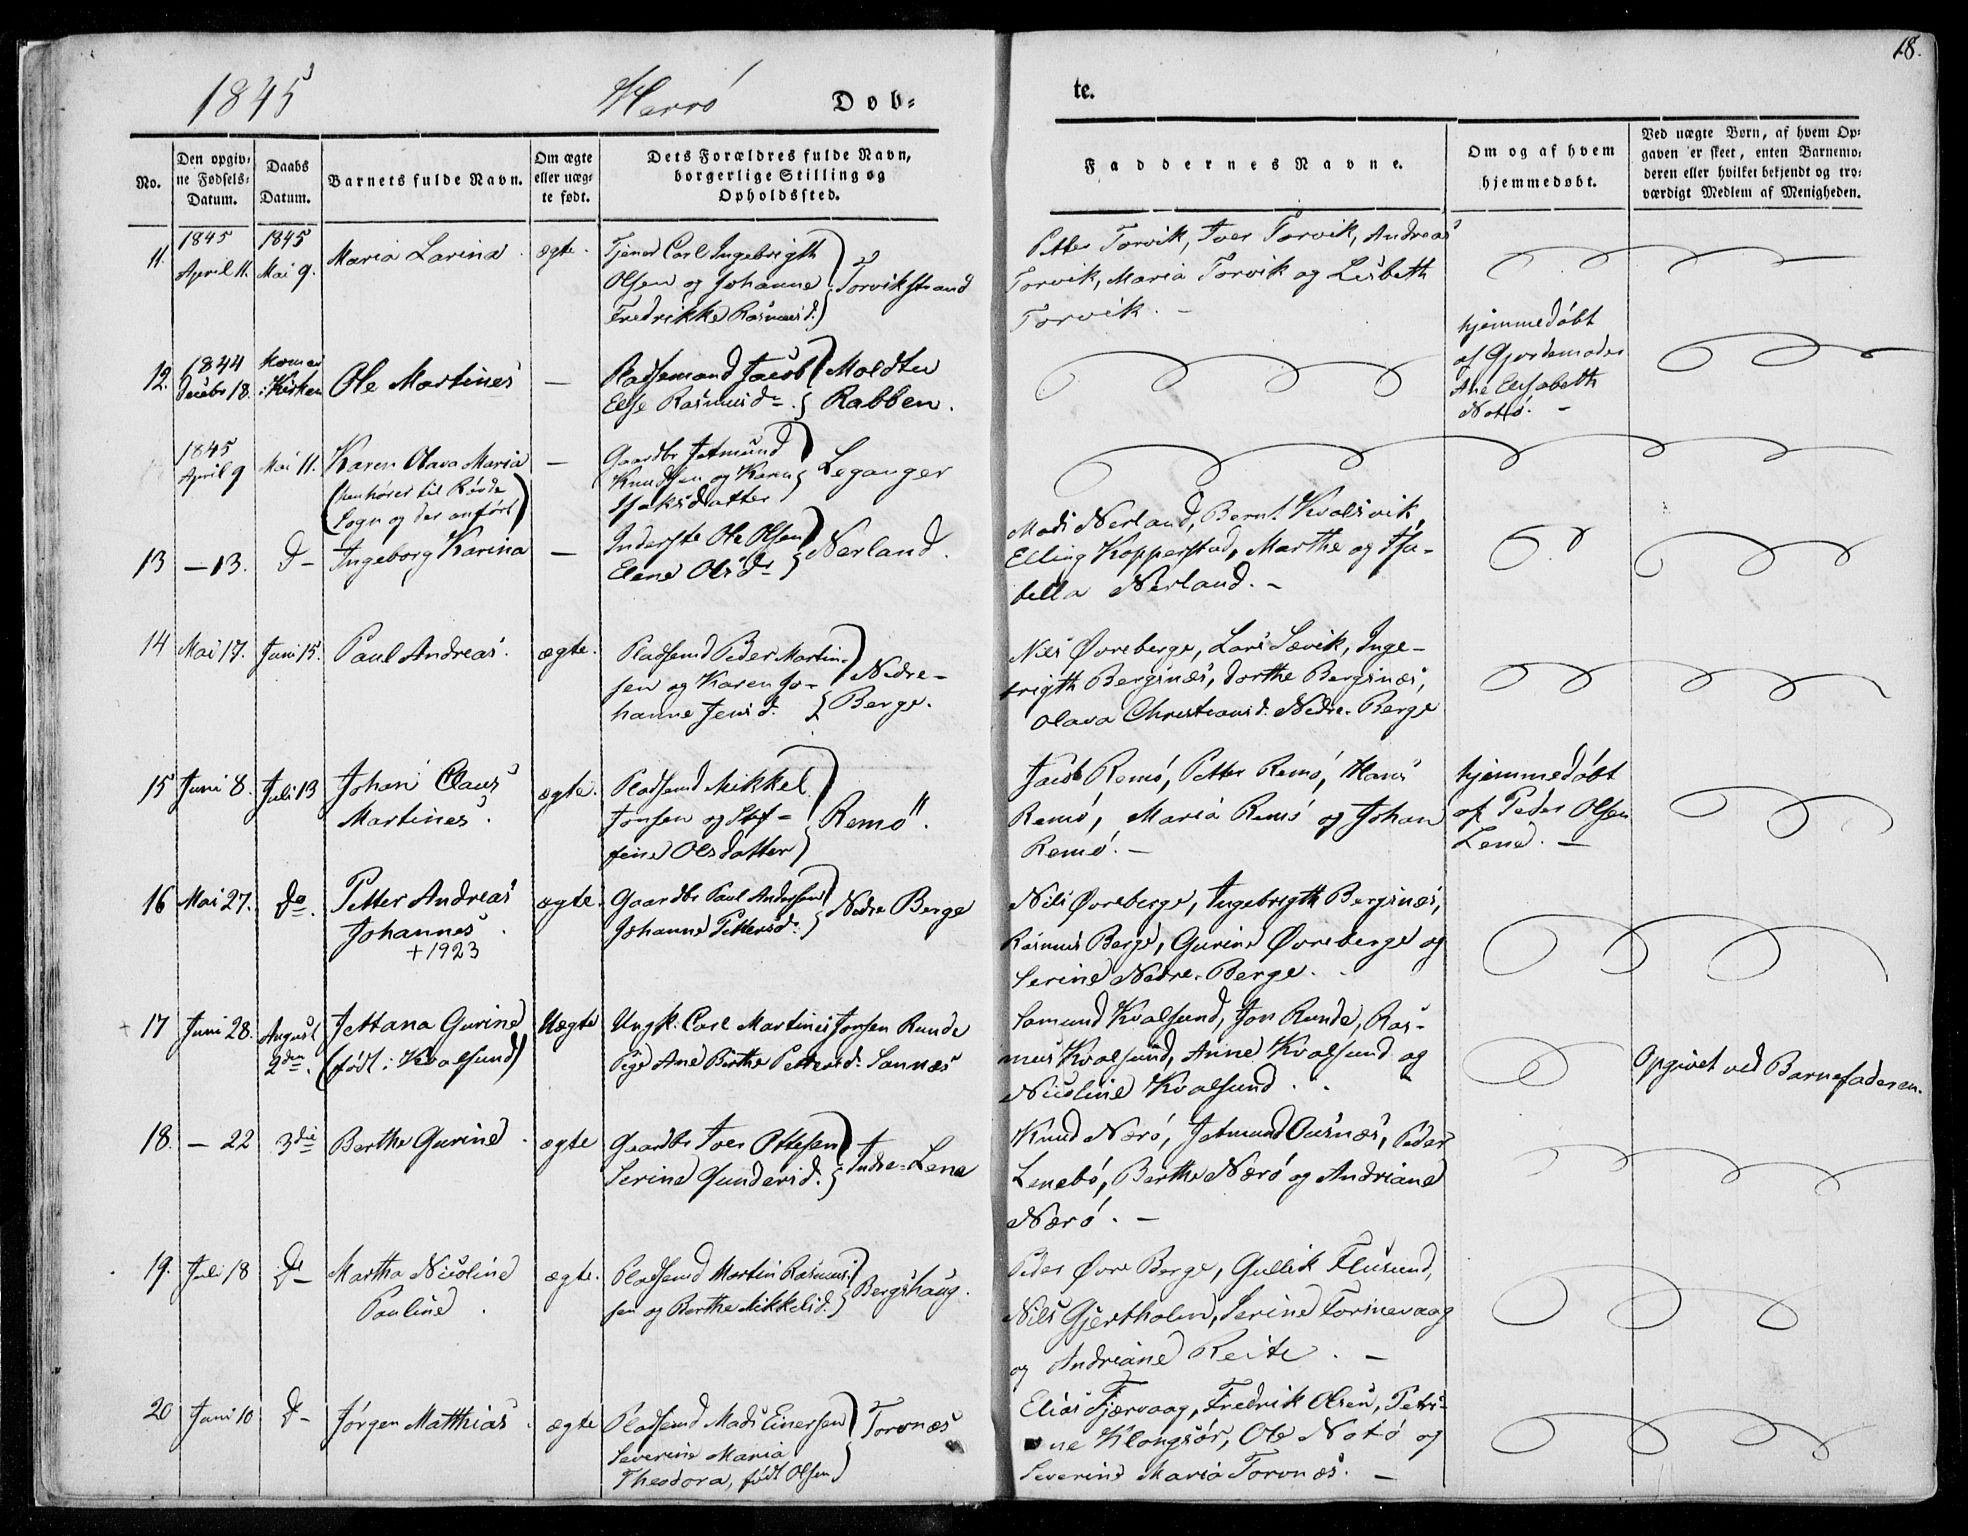 18.
1845 Herrö Døb= te.
No.
Den opgiv=
ne Fødsels=
Datum.
Daabs
Datum.
Barnets fulde Navn.
Om ægte
eller uæg=
te født.
Dets Forældres fulde Navn,
borgerlige Stilling og
Opholdssted.
Faddernes Navne.
Om og af hvem
hjemmedøbt.
Ved uægte Børn, af hvem Op=
gaven er skeet, enten Barnemo=
deren eller hvilket bekjendt og tro=
værdigt Medlem af Menigheden.
11.
1845
April 11.
1845
Mai 9.
Maria Larina.
ægte.
Tjener Carl Ingebrigth
Olsen og Johanne
Fredrikke Rasmusd.
Torvikstrand
Petter Torvik, Iver Torvik, Andreas
Torvik, Maria Torvik og Lisbeth
Torvik. -
12.
1844
Decebr 18.
i Kirken
Ole Martines
—
Pladsemand Jacob
Else Rasmusdr.
Moldtu
Rabben.
hjemmedöbt
af Gjordemoder
Ane Elisabeth
Notö. -
1845
April 9
Mai 11.
Karen Olava Maria
(henhörer til Røvde
Sogn og der anfört)
—
Gaardbr Jetmund
Knudsen og Karen
Isaksdatter
Leganger
13
—13.
D—
Ingeborg Karina
—
Inderste Ole Olsen
Elene Olsdr
Nerland.
Mads Nerland, Bernt Kvalsvik,
Elling Kopperstad, Marthe og Isa-
bella Nerland. -
14
Mai 17.
Juni 15.
Paul Andreas.
ægte.
Pladsemd Peder Martin-
sen og Karen Jo-
hanne Jensd.
Nedre-
Berge.
Nils Øvreberge, Lars Sævik, Inge-
brigth Bergsnæs, Dorthe Bergsnæs,
Olava Christiansd. Nedre-Berge
15
Juni 8.
Juli 13
Johan Claus
Martines.
ægte.
Pladsemd Mikkel
Jonsen og Stef-
fine Olsdatter
Remö.
Jacob Remö, Petter Remö, Hans
Remö, Maria Remö og Johan
Remö. -
hjemmedöbt
af Peder Olsen
Lene. —
16
Mai 27.
Do.
Petter Andreas
Johannes.
+1923
ægte.
Gaardbr Paul Andersen
Johanne Pettersdr.
Nedre Berge
Nils Øvreberge, Ingebrigth Bergsnæs,
Rasmus Berge, Gurine Øvreberge og
Serine Nedre-Berge.
17
Juni 28.
August
2den.
Jettana Gurine
(födt i Kvalsund)
Uægte
Ungk. Carl Martines Jonsen Runde
Pige Ane Birthe Pettersd. Sannæs
Samund Kvalsund, Jon Runde, Ras-
mus Kvalsund, Anne Kvalsund og
Nicoline Kvalsund.
Opgivet ved Barnefaderen.
18.
— 22
3die
Berthe Gurine.
ægte
Gaardbr Iver Ottesen
Serine Gundersd.
Indre-Lene
Knud Nærö, Jetmund Ousnæs, Peder
Lenebö, Berthe Nærö og Andriane
Nærö. —
19.
Juli 18
D—
Martha Nicoline
Pauline.
ægte.
Pladsemd Martin Rasmus-
sen og Berthe Mikkelsd.
Bergshaug.
Peder Øvre Berge, Gullik Flusund,
Nils Gjertholm, Serine Torinevaag
og Andriane Reite. —
20
Juni 10
D—
Jörgen Matthias.
ægte
Pladsemd Mads Einersen
Severine Maria
Theodora, födt Olsen
Torvnæs
Elias Fjærvaag, Fredrik Olsen, Petri-
ne Klongsör, Ole Notö og
Severine Maria Torvnæs. —